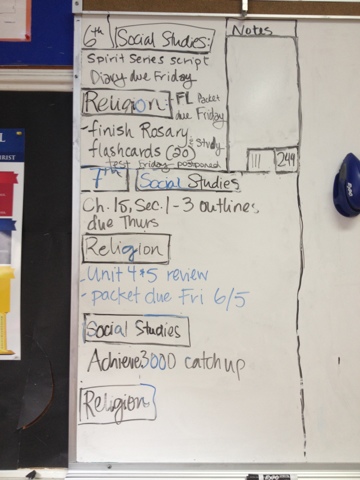 6th Social Studies:
Notes
Spirit Series script
Diary due Friday
Religion - FL Packet
due Friday
-finish Rosary
flashcards (20) & study
test Friday postponed
111 244
7th Social Studies
Ch. 15, Sec. 1-3 outlines
due Thurs
Religion
-Unit 4+5 review
-packet due Fri 6/5
Social Studies
Achieve3000 catch up
Religion